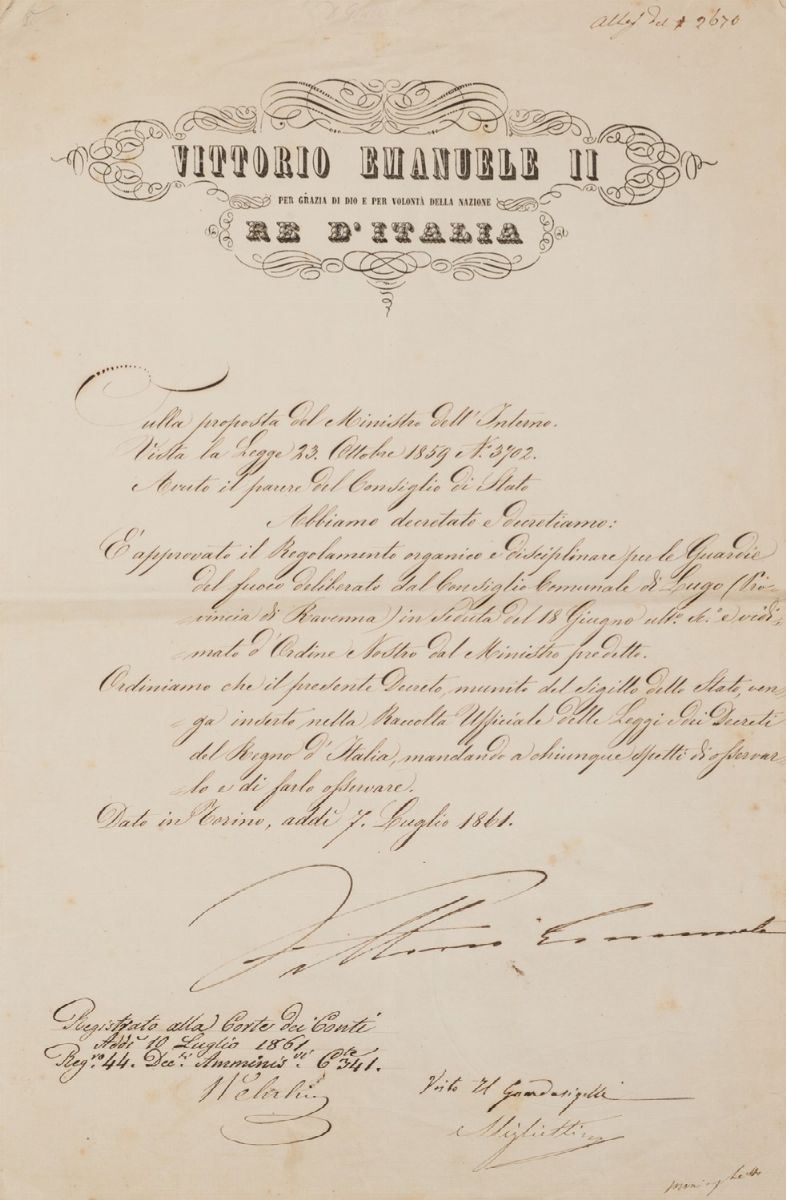 Alleg del 2670
VITTORIO EMANUELE II
PER GRAZIA DI DIO E PER VOLONTÀ DELLA NAZIONE
RE D'ITALIA
Sulla proposta del Ministro dell'Interno.
Vista la Legge 23. Ottobre 1859 N.° 3702.
Avuto il parere del Consiglio di Stato
Abbiamo decretato e decretiamo:
È approvato il Regolamento organico e disciplinare per le Guardie
del fuoco deliberato dal Consiglio Comunale di Lugo (Pro-
vincia di Ravenna) in Seduta del 18 Giugno ult.° s.° e vidi-
mato d'Ordine Nostro dal Ministro predetto.
Ordiniamo che il presente Decreto, munito del Sigillo dello Stato, ven-
ga inserto nella Raccolta Ufficiale delle Leggi e dei Decreti
del Regno d'Italia, mandando a chiunque spetti di osservar-
lo e di farlo osservare.
Dato in Torino, addì 7. Luglio 1861.
Vittorio Emanuele
Registrato alla Corte dei Conti
Addì 10 Luglio 1861
Reg.ro 44. Dec.ti Amminis.vi C.te 341.
Visto Il Guardasigilli
Miglietti
Minghetti